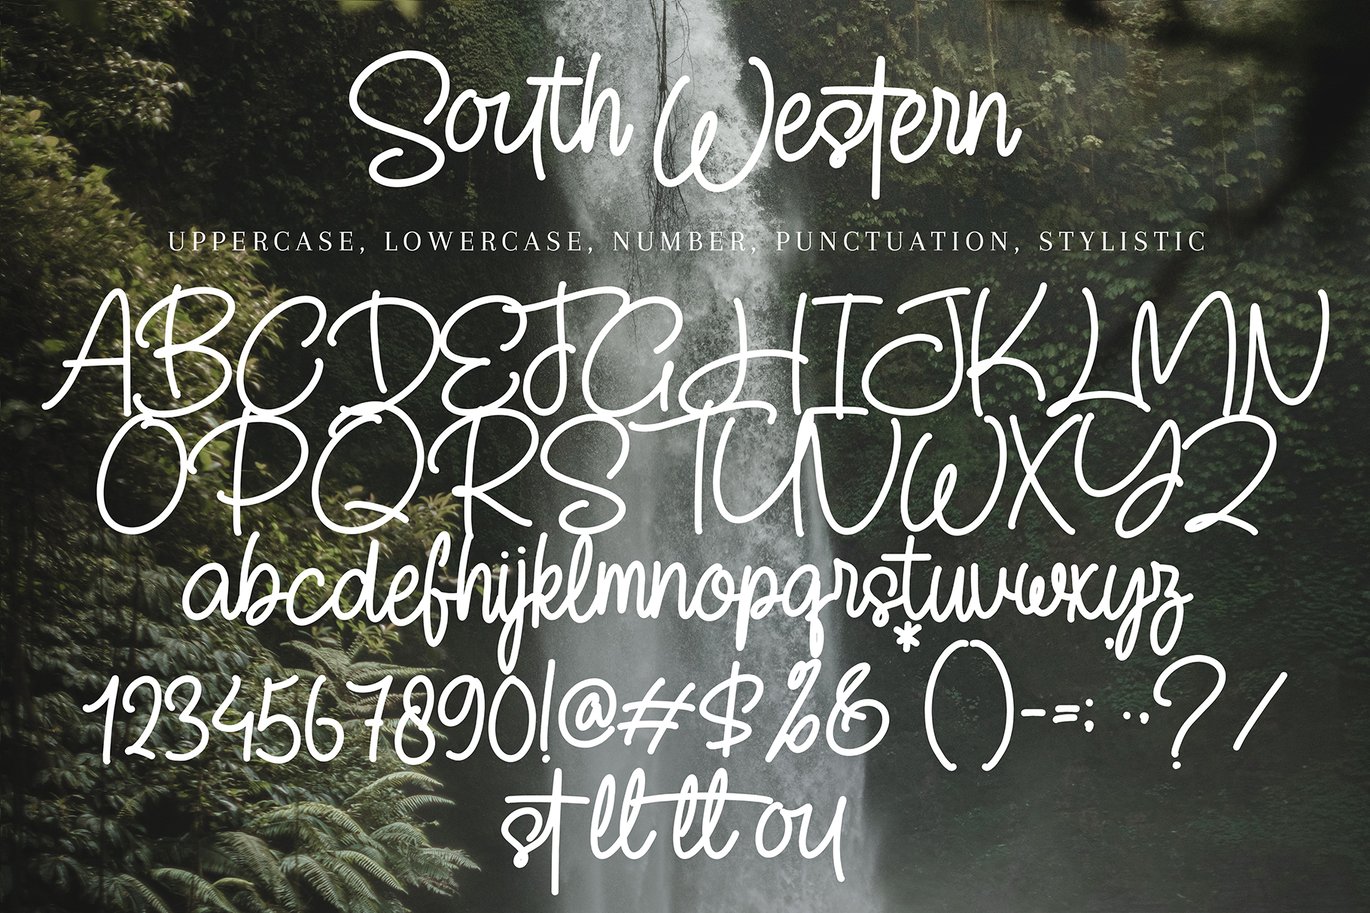 South Western
UPPERCASE, LOWERCASE, NUMBER, PUNCTUATION, STYLISTIC
ABCDEFGHIJKLMN
OPQRSTUVWXYZ
abcdefhijklmnopqrstuvwxyz
1234567890!@#$%&*()-=;.,?/
st ll tt ou